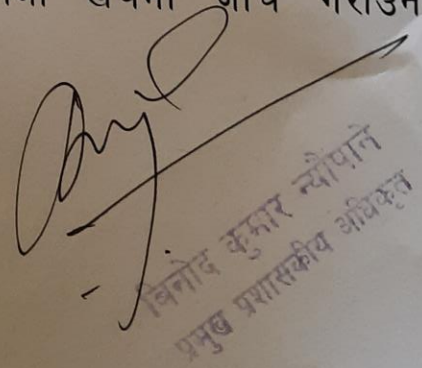 गराउन
बिनोद कुमार न्यौपाने
प्रमुख प्रशासकीय अधिकृत